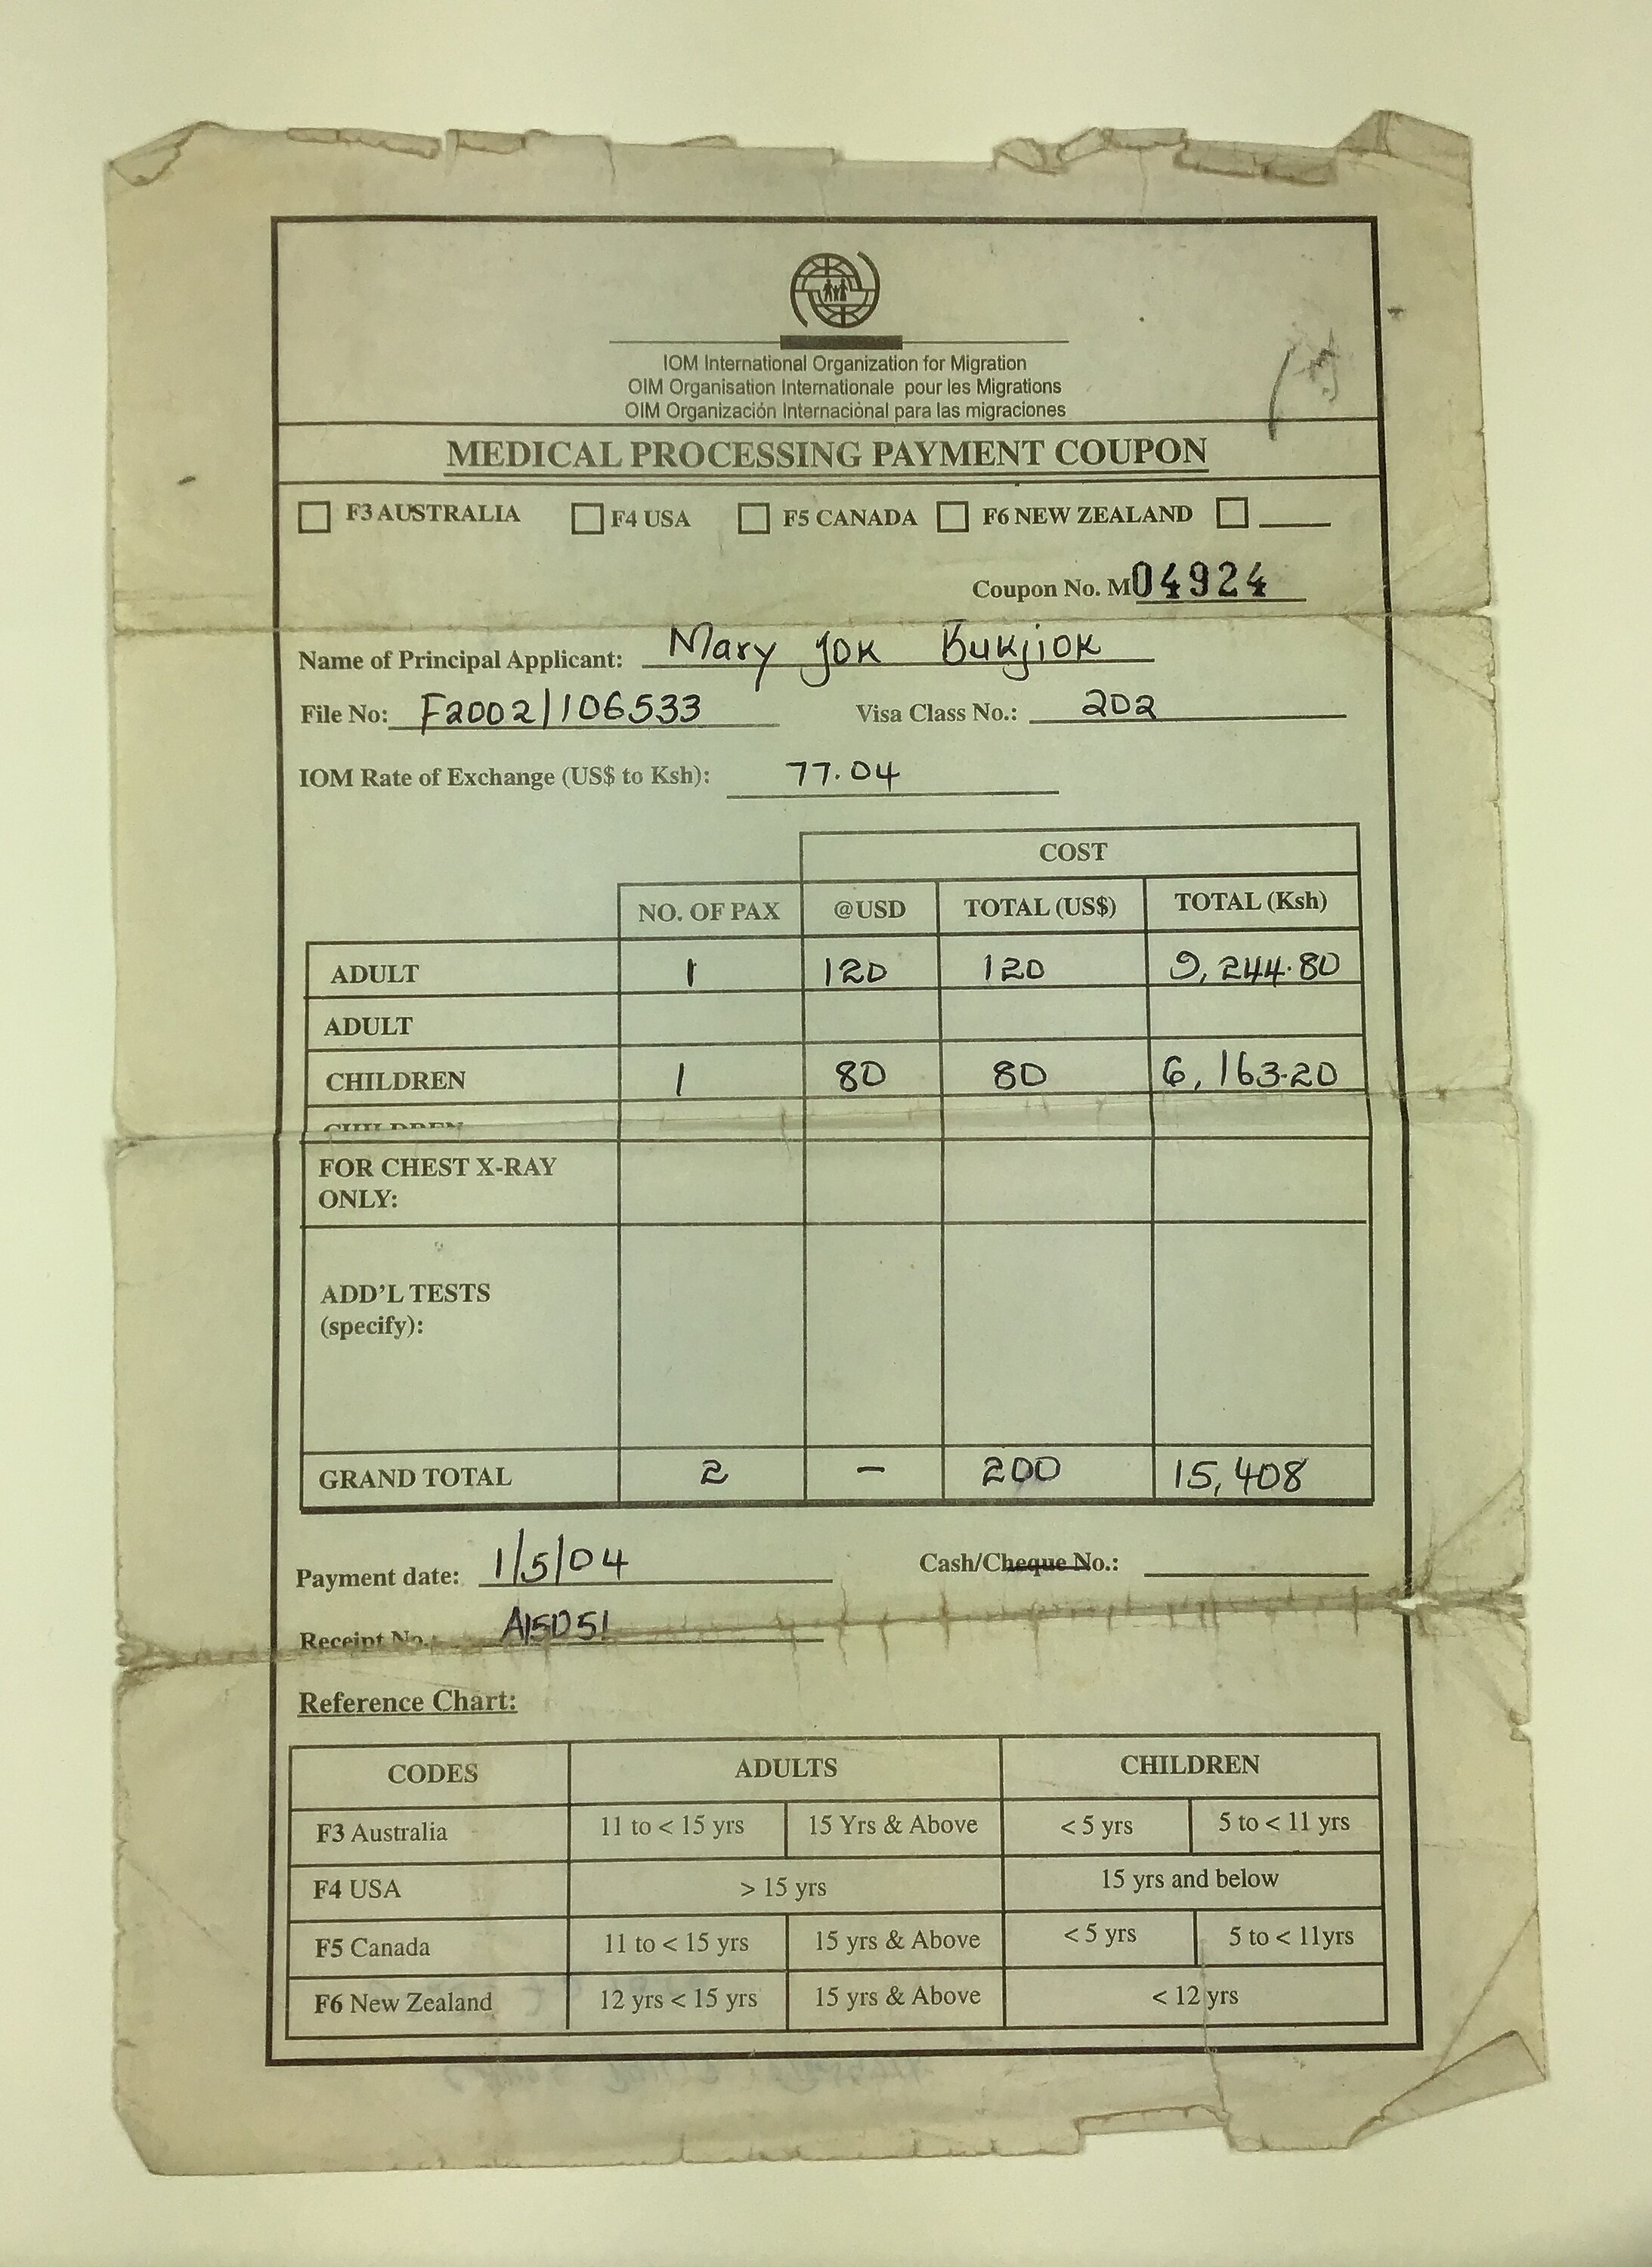 IOM International Organization for Migration
OIM Organisation Internationale pour les Migrations
OIM Organización Internaciònal para las migraciones
MEDICAL PROCESSING PAYMENT COUPON
F3 AUSTRALIA F4 USA F5 CANADA F6 NEW ZEALAND
Coupon No. M04924
Name of Principal Applicant: Mary Jok Bukjiok
File No: F2002/106533 Visa Class No.: 202
IOM Rate of Exchange (US$ to Ksh): 77.04
COST
NO. OF PAX @USD TOTAL (US$) TOTAL (Ksh)
ADULT 1 120 120 9,244.80
ADULT
CHILDREN 1 80 80 6,163.20
CHILDREN
FOR CHEST X-RAY
ONLY:
ADD'L TESTS
(specify):
GRAND TOTAL 2 – 200 15,408
Payment date: 1/5/04 Cash/Cheque No.:
Receipt No.: A15051
Reference Chart:
CODES ADULTS CHILDREN
F3 Australia 11 to < 15 yrs 15 Yrs & Above < 5 yrs 5 to < 11 yrs
F4 USA > 15 yrs 15 yrs and below
F5 Canada 11 to < 15 yrs 15 yrs & Above < 5 yrs 5 to < 11yrs
F6 New Zealand 12 yrs < 15 yrs 15 yrs & Above < 12 yrs